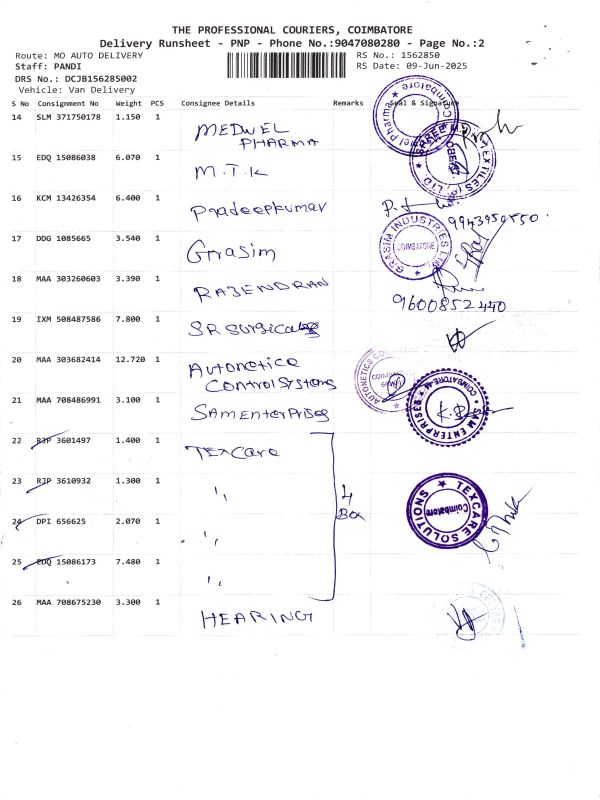 THE PROFESSIONAL COURIERS, COIMBATORE
Delivery Runsheet - PNP - Phone No.:9047080280 - Page No.:2
Route: MO AUTO DELIVERY
RS No.: 1562850
Staff: PANDI
RS Date: 09-Jun-2025
DRS No.: DCJB156285002
Vehicle: Van Delivery
S No Consignment No Weight PCS Consignee Details Remarks Seal & Signature
14 SLM 371750178 1.150 1 MEDWEL
PHARMA
15 EDQ 15086038 6.070 1 M.T.K
16 KCM 13426354 6.400 1 Pradeepkumar
9943959550
17 DDG 1085665 3.540 1 Grasim
GRASIM INDUSTRIES
COIMBATORE
18 MAA 303260603 3.390 1 RAJENDRAN
9600852440
19 IXM 508487586 7.800 1 SR Surgicals
20 MAA 303682414 12.720 1 Autonetics
Control Systems
AUTONETICS
21 MAA 708486991 3.100 1 SAM Enterprises
SAM ENTERPRISES
COIMBATORE
22 RJP 3601497 1.400 1 TEXCare
23 RJP 3610932 1.300 1 ''
4
Box
TEXCARE SOLUTIONS
Coimbatore
24 DPI 656625 2.070 1 ''
25 EDQ 15086173 7.480 1 ''
26 MAA 708675230 3.300 1 HEARING